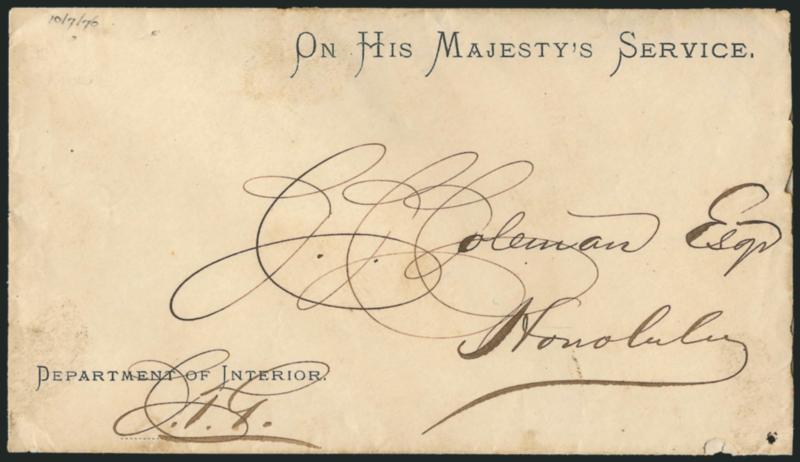 10/7/76
On His Majesty's Service.
C. C. Coleman Esqr
Honolulu
Department of Interior.